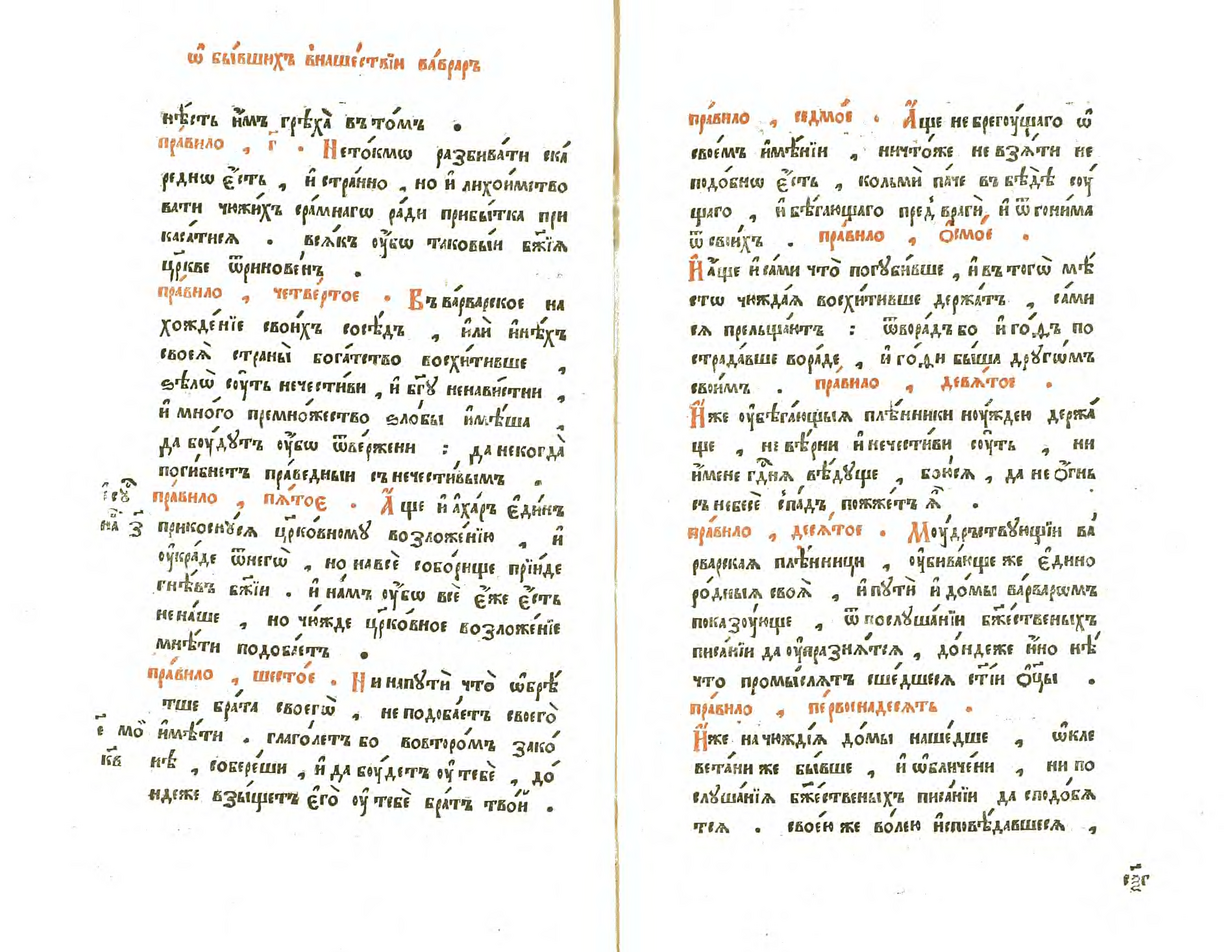 ѿ бы́вшихъ в̾наше́ствїи ва́рваръ
нѣ́сть и҆̀мъ грѣха̀ въ то́мъ .
пра́вило , г҃ . Нето́кмѡ разбива́ти ска́
редно є҆́сть , и҆ стра́нно , но и҆ лихои́мство
вати чюжи́хъ сра́мнагѡ ра́ди прибы́тка при
каса́тися . вся́къ оу҆́бѡ таковы́и бж҃їѧ
цр҃кве ѿринове́нъ .
пра́вило , четве́ртое . Въ ва́рварское на
хожде́нїе свои́хъ сосѣ́дъ , и҆лѝ и҆нѣ́хъ
своеѧ̀ страны̀ бога́тство восхи́тивше ,
ѕѣлѡ̀ соу́ть нечести́ви , и҆ бг҃у ненави́стни ,
и҆ мно́го премно́жество ѕло́бы и҆мѣ́ша ,
да боу́дутъ оу҆́бѡ ѿве́ржени : да некогда̀
поги́бнетъ пра́ведныи съ нечести́вымъ .
пра́вило , пѧ́тоє . А҆́ще и҆ а҆ха́ръ є҆ди́нъ
прикосну́сѧ цр҃ко́вному возложе́нїю , и҆
оу҆кра́де ѿнегѡ̀ , но на всѐ собо́рище прїи́де
гнѣ́въ бж҃їи . и҆ на́мъ оу҆́бѡ всѐ є҆́же є҆́сть
не на́ше , но чю́жде цр҃ко́вное возложе́нїе
мнѣ́ти подоба́етъ .
пра́вило , шесто́е . Ни на путѝ что̀ ѡ҆брѣ́
тше бра́та своегѡ̀ , не подоба́етъ своего̀
и҆мѣ́ти . глаго́летъ бо вовторо́мъ зако́
нѣ , собере́ши , и҆ да боу́детъ оу҆ тебѐ , до́
ндеже взы́щетъ є҆го̀ оу҆ тебѐ бра́тъ тво́и .
і҆с҃у
на҃ з҃
є҃ мо̑
кв҃
пра́вило , седмо́е . А҆́ще не брегоу́щаго ѿ
свое́мъ и҆мѣ́нїи , ничто́же не взѧ́ти не
подо́бнѡ є҆́сть , кольмѝ па́че въ бѣдѣ̀ соу́
щаго , и҆ бѣ́гающаго пред̾ врагѝ , и҆ ѿ гони́ма
ѿ свои́хъ . пра́вило , ѻ҆смо́е .
И҆ а҆́ще и҆ са́ми что̀ погуби́вше , и҆ въ тогѡ̀ мѣ́
стѡ чюжда́ѧ восхи́тивше держа́тъ , са́ми
сѧ прельща́ютъ : ѿвора́дъ бо и҆ го́дъ по
страда́вше вора́де , и҆ го́ди бы́ша другѡ́мъ
свои́мъ . пра́вило , девѧ́тое .
И҆́же оу҆бѣга́ющыѧ плѣ́нники ноу́ждею держа́
ще , не вѣ́рни и҆ нечести́ви соу́ть , ни
и҆́мене гд҇нѧ вѣ́дуще , бо́исѧ , да не ѻ҆́гнь
съ небесѐ спа́дъ пожже́тъ ѧ҆̀ .
пра́вило , десѧ́тое . Моу́дрствующїи ва́
рварскаѧ плѣ́нницы , оу҆бива́юще же є҆ди́но
ро́дныѧ своѧ̀ , и҆ путѝ и҆ до́мы ва́рварѡмъ
показоу́юще , ѿ послуша́нїи бж҃е́ственыхъ
писа́нїи да оу҆праѕнѧ́тсѧ , до́ндеже и҆́но нѣ́
что промы́слѧтъ сше́дшесѧ ст҃їи ѻ҆ц҃ы .
пра́вило , пе́рвоенадесѧть .
И҆́же на чюжді́ѧ до́мы наше́дше , ѡ҆кле
вета́ни же бы́вше , и҆ ѡ҆бличе́ни , ни по
слуша́нїѧ бж҃е́ственыхъ писа́нїи да сподо́бѧ
тсѧ . свое́ю же во́лею и҆сповѣ́давшесѧ ,